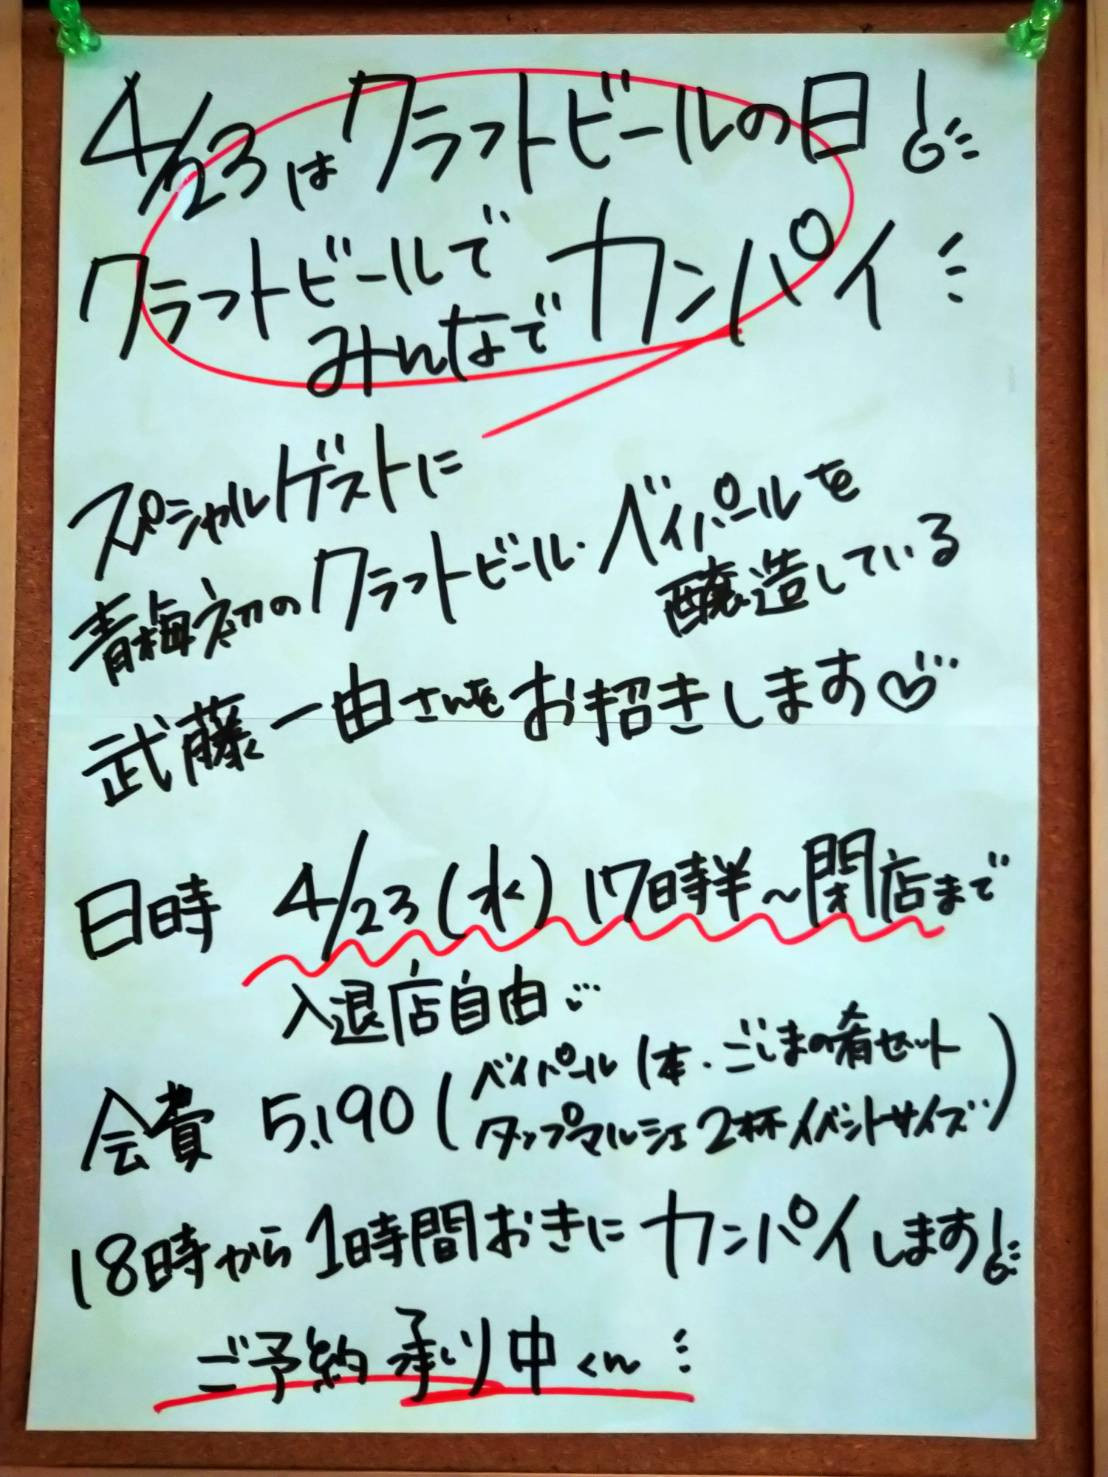 4/23はクラフトビールの日!
クラフトビールで
みんなでカンパイ
スペシャルゲストに
青梅初のクラフトビール・ベイパールを
醸造している
武藤一由さんをお招きします♡
日時 4/23(水)17時半~閉店まで
入退店自由
会費 5,190(ベイパール1本・ごしまの肴セット
タップマルシェ2杯イベントサイズ)
18時から1時間おきにカンパイします!
ご予約承り中